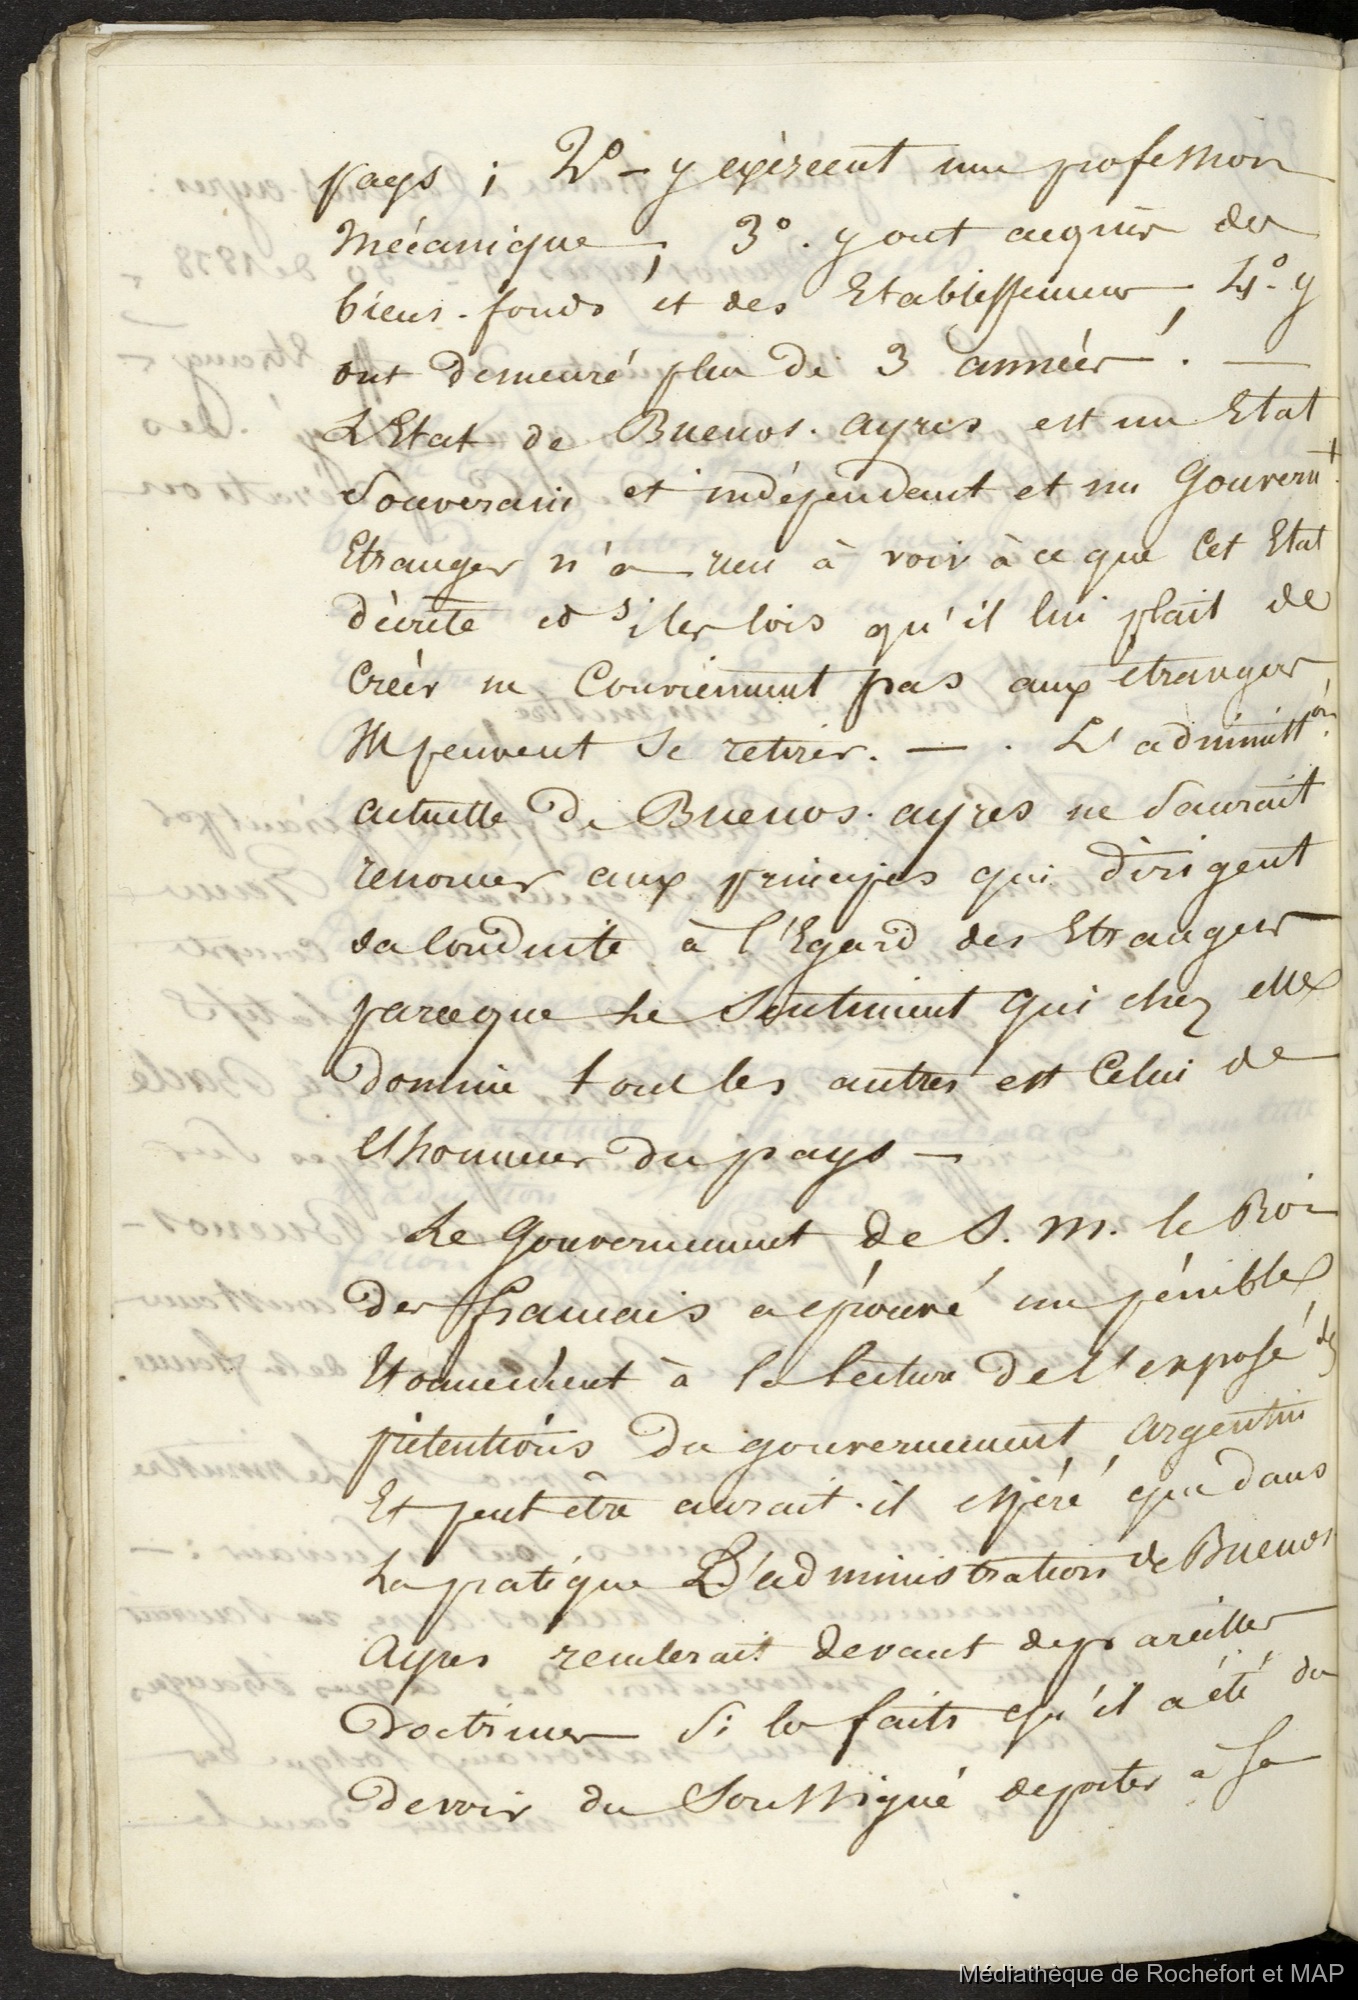 pays ; 2º - y exercent une profession
Mécanique ; 3º. y ont acquis des
biens-fonds et des Etablissemens ; 4º- y
ont demeuré plus de 3 années . —
L'Etat de Buenos-ayres est un Etat
Souverain et indépendant et un Gouvernt.
Etranger n'a rien à voir à ce que Cet Etat
décrète et si les lois qu'il lui plait de
Créer ne Conviennent pas aux étrangers,
Ils peuvent se retirer. — . L'administton.
actuelle de Buenos-ayres ne Saurait
renoncer aux principes qui dirigent
sa Conduite à l'Egard des Etrangers
parceque Le Sentiment qui chez elle
domine tous les autres est Celui de
l'honneur du pays —
Le Gouvernement de S. M. le Roi
des français a éprouvé un pénible
Etonnement à la lecture de l'exposé des
prétentions du gouvernement Argentin
Et peut être aurait-il espéré que dans
La pratique L'administration de Buenos
Ayres reculerait devant de pareilles
doctrines Si les faits qu'il a été du
devoir du Soussigné de porter à Sa
Médiathèque de Rochefort et MAP